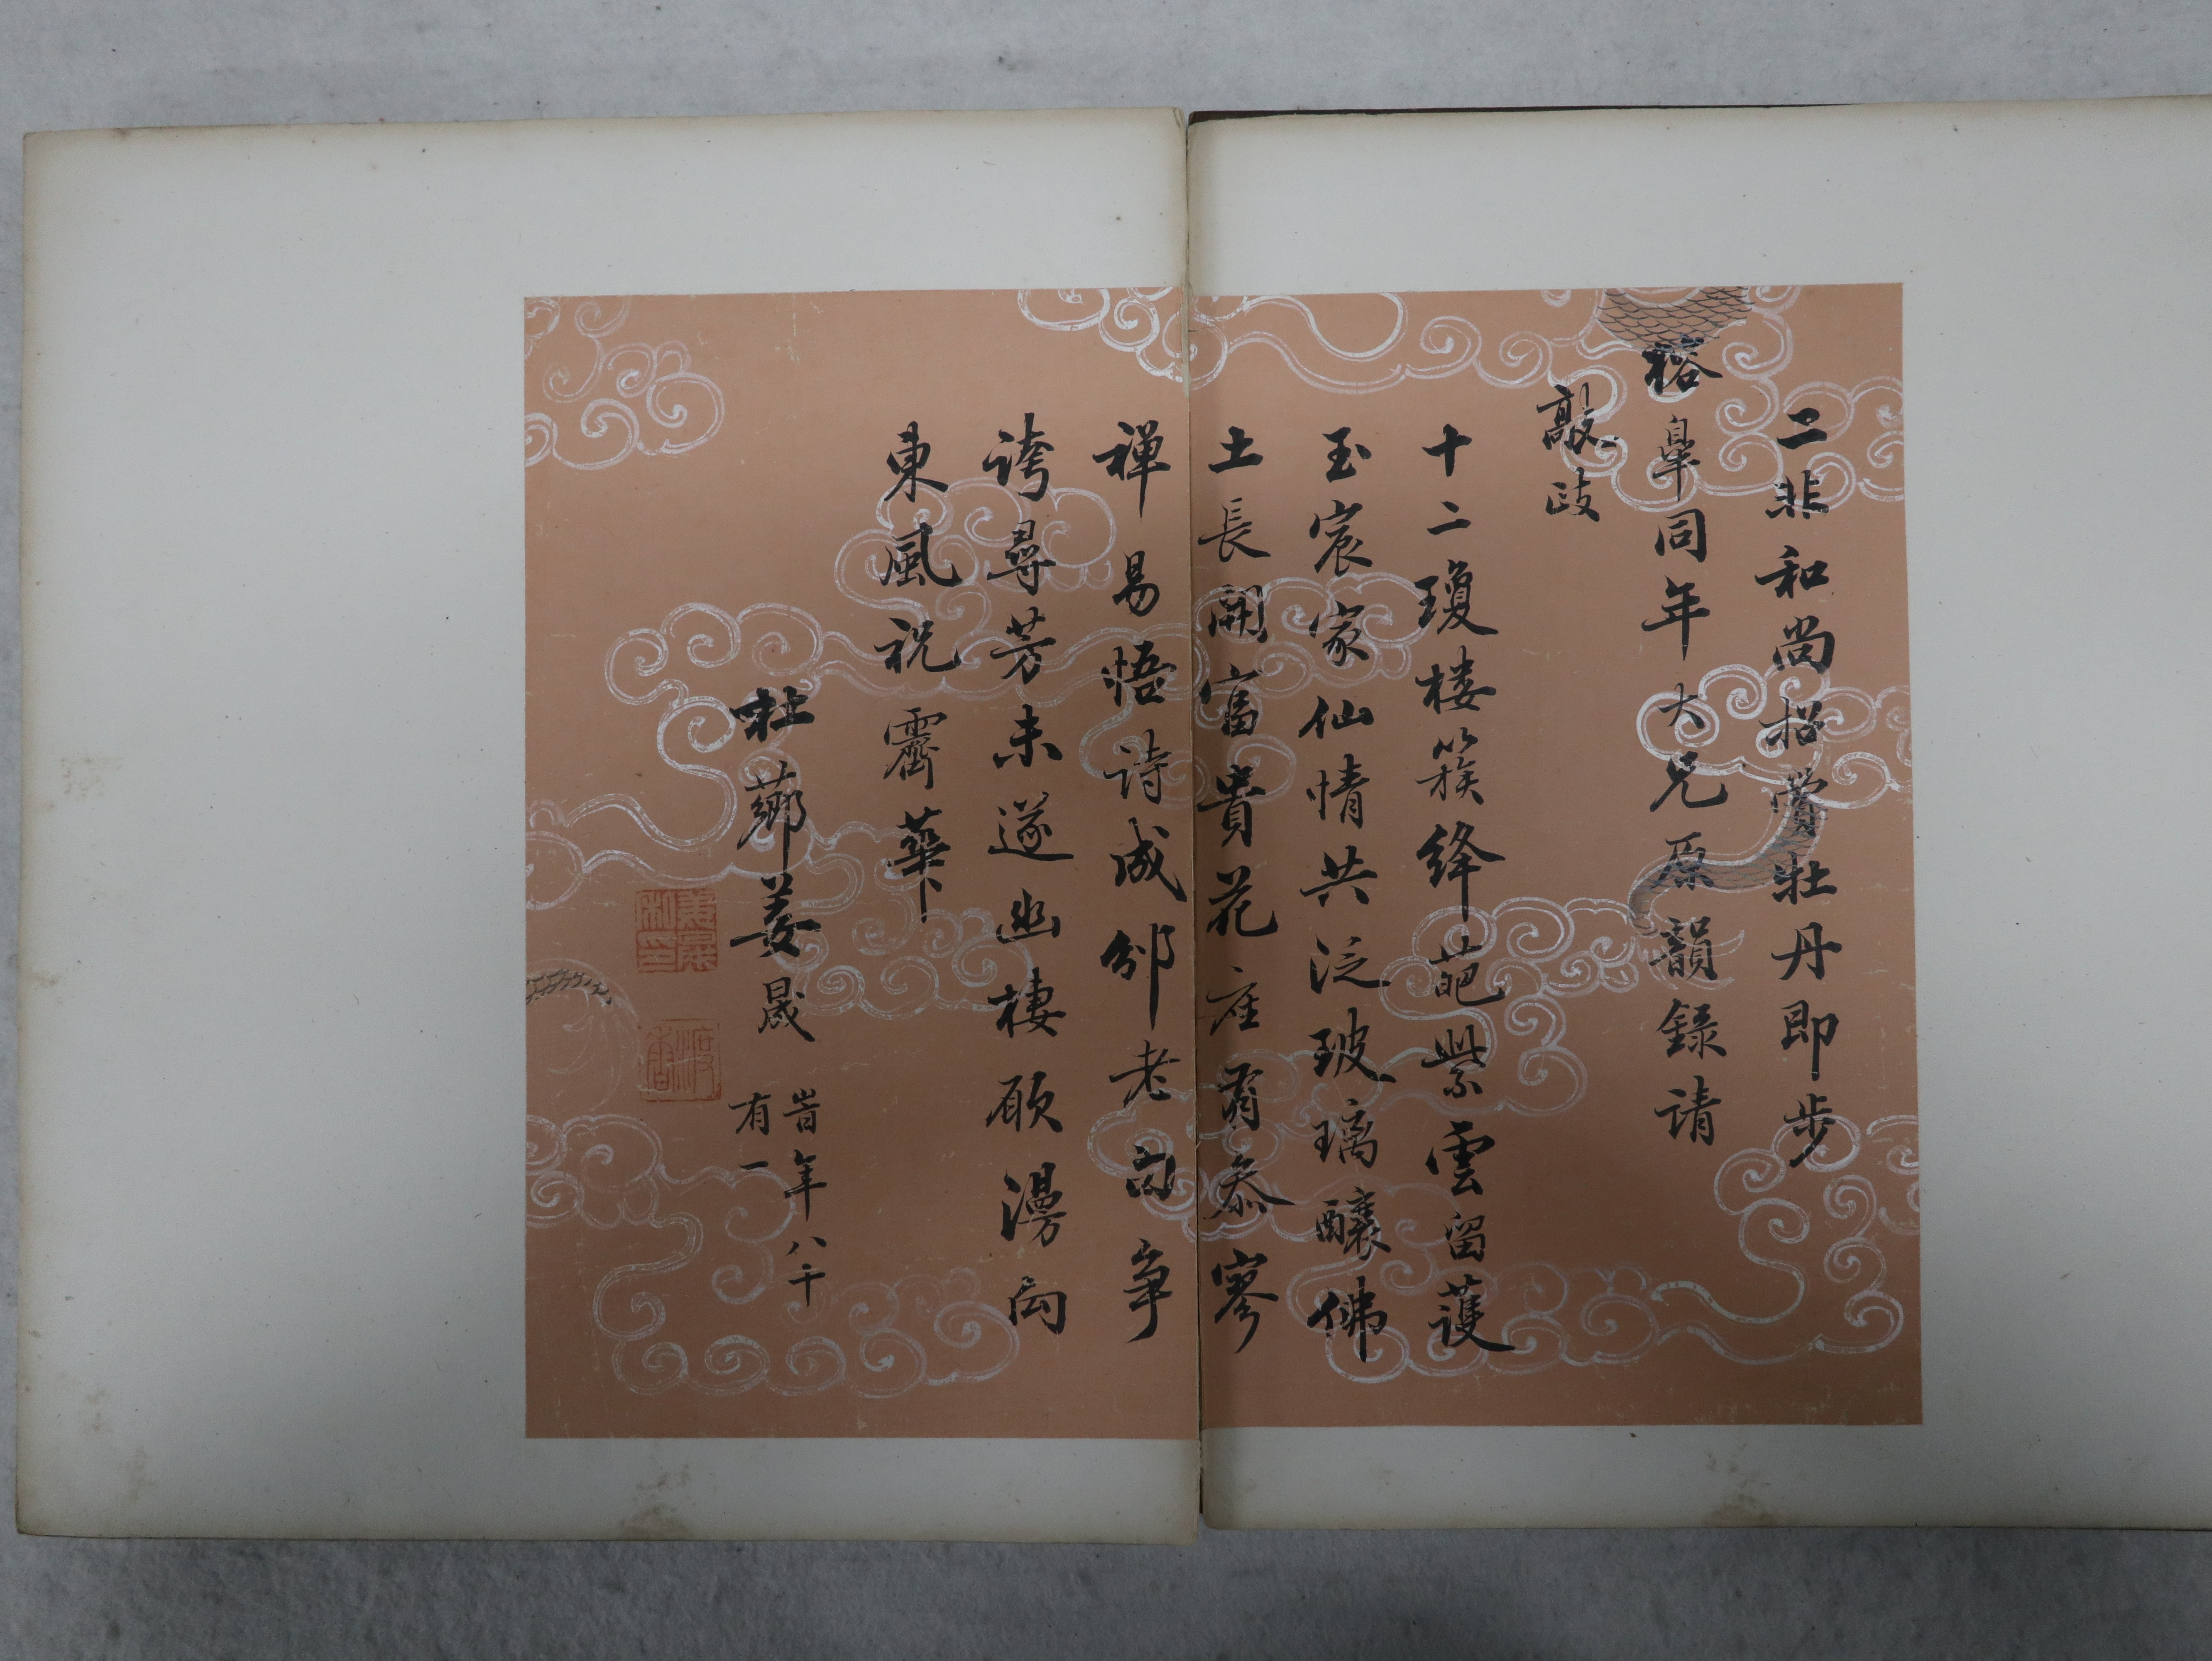 二非和尚招賞牡丹即步
榕皐同年大兄原韻録请
敲政
十二瓊楼簇绛葩紫雲留護
玉宸家仙情共泛玻璃釀佛
土長開富貴花座有叅寥
禅易悟诗成邠老句争
誇尋芳未遂幽棲願漫向
東風祝霱華
杜薌姜晟
岢年八十
有一